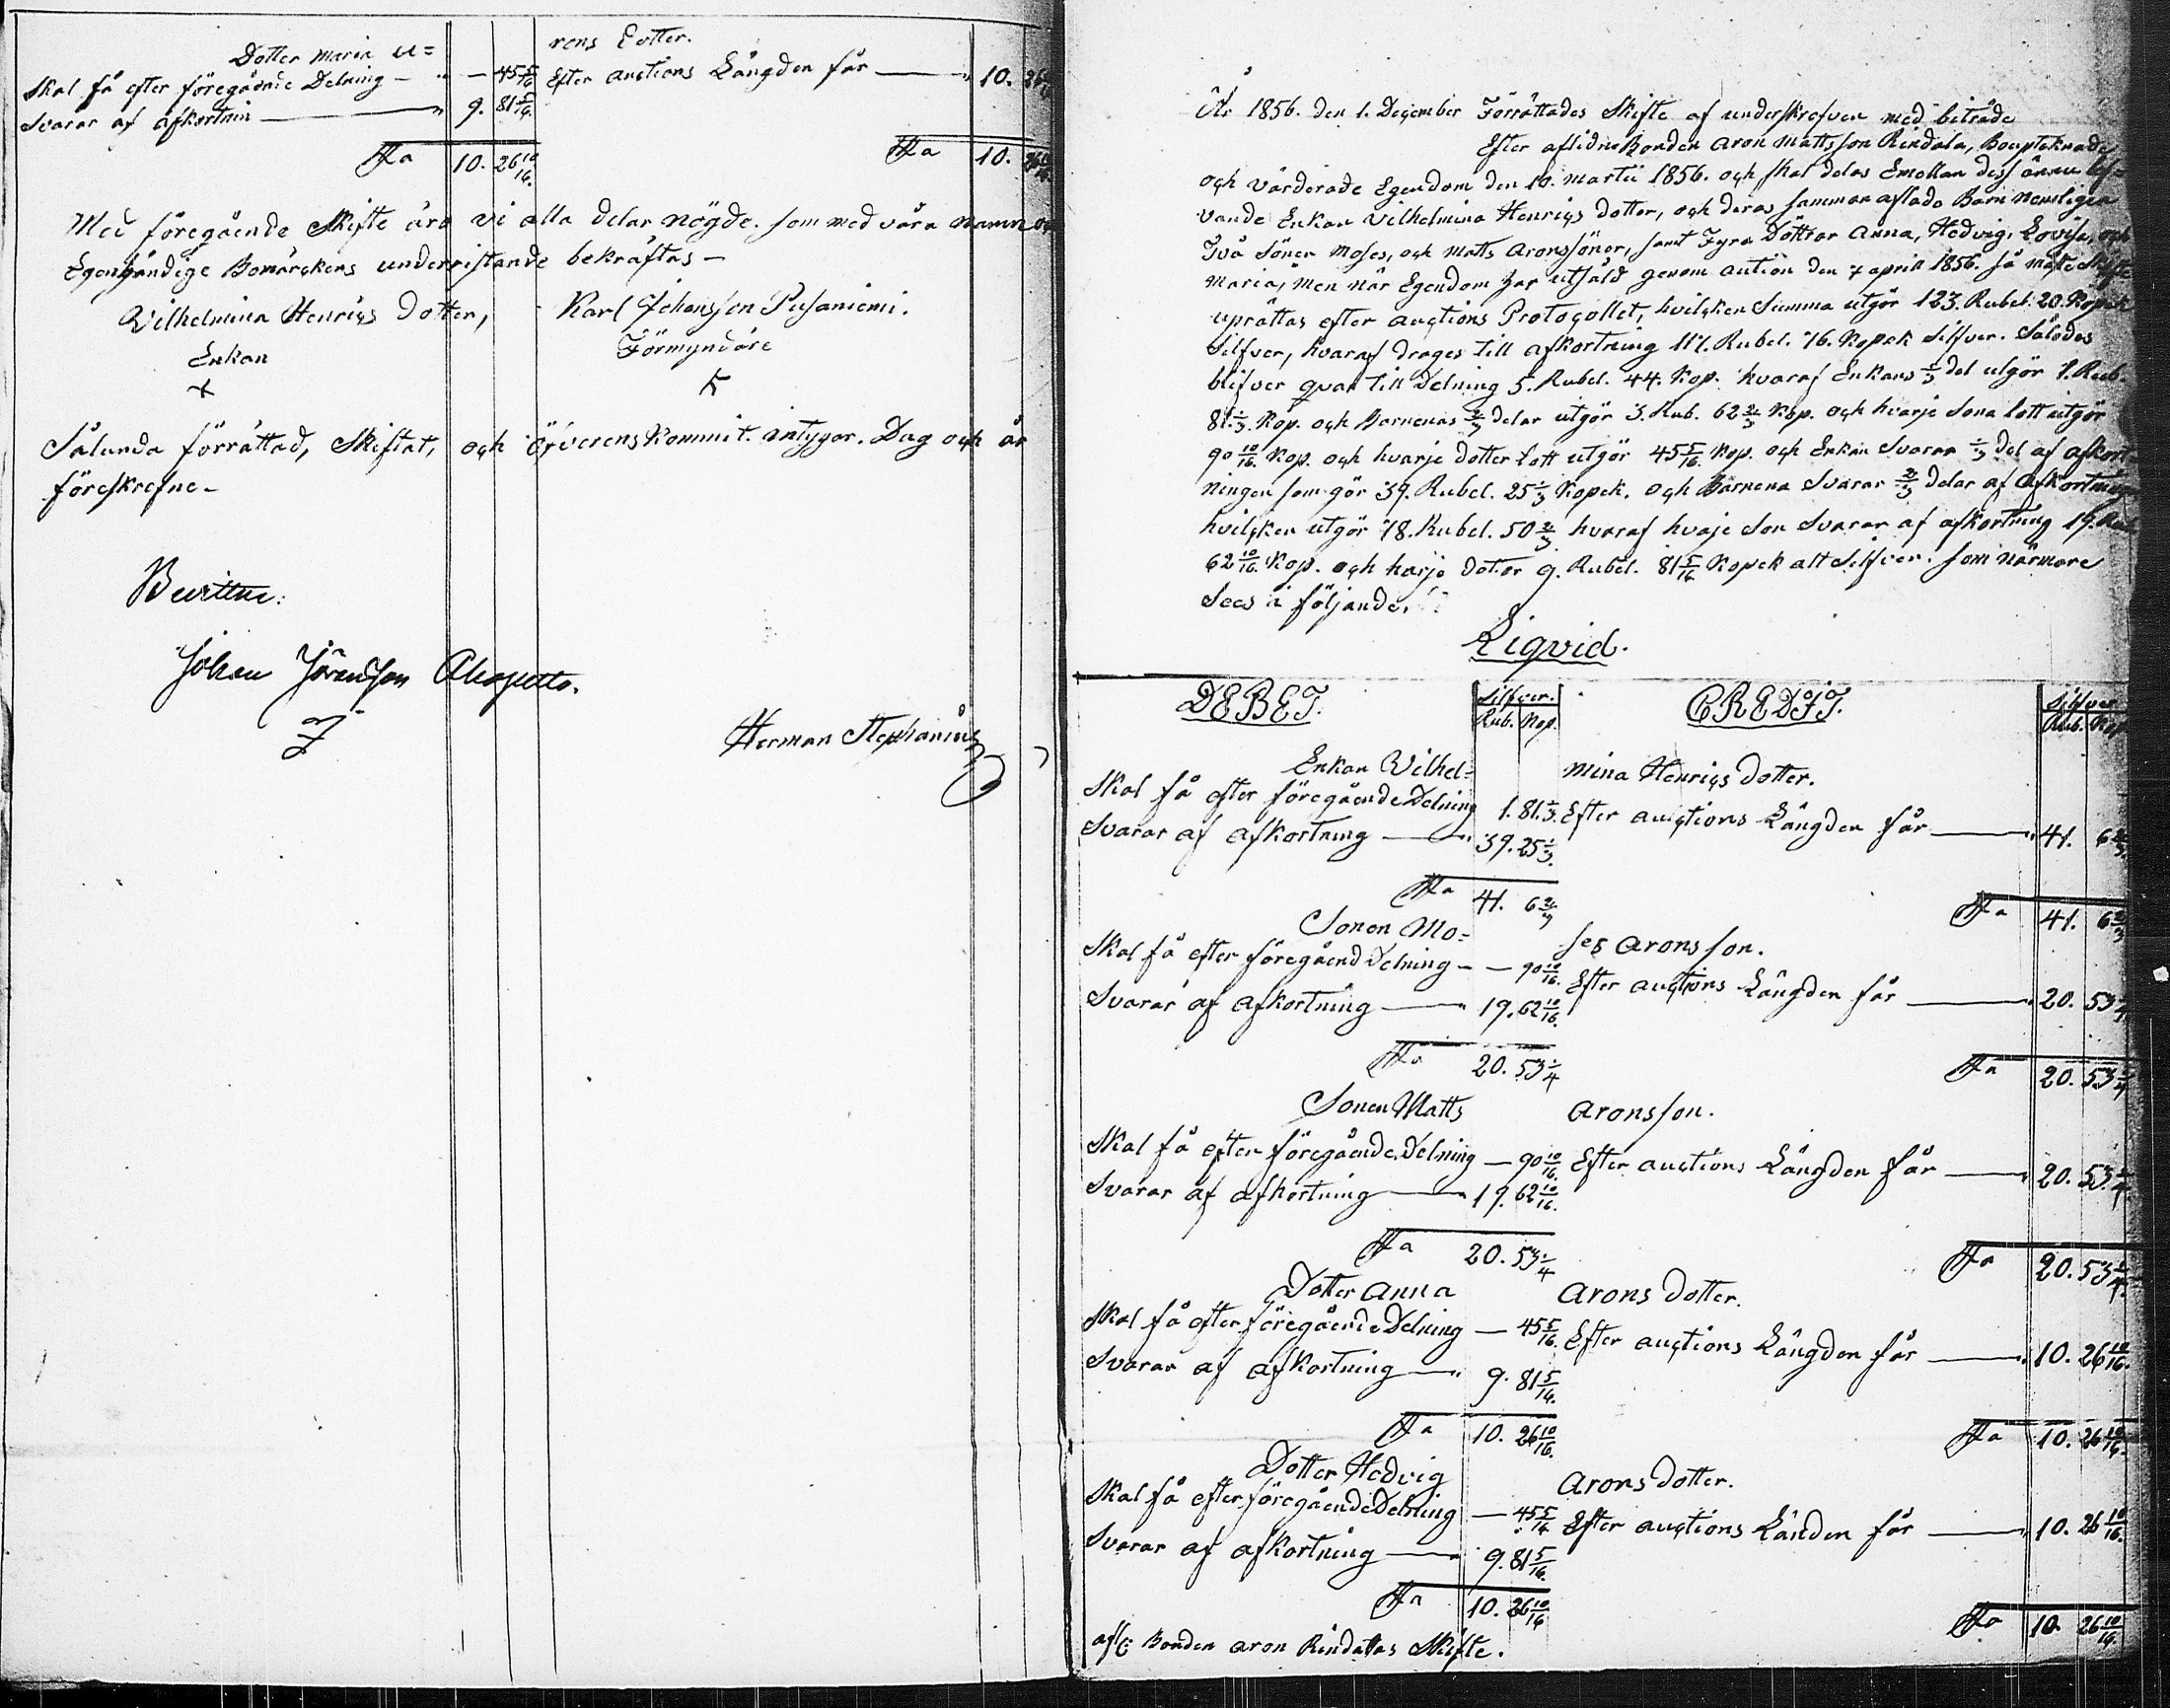 Dotter Maria u=
rens Dotter.
Skal få efter föregåënde Delning — " — 45 5/16
Efter auctions Längden får — " 10. 26
Svarar af afkortnin — " 9. 81 5/16.
Sa 10. 26 10/16.
Sa 10. 26 10/16
Med föregåënde Skifte äro vi alla delar nögde. som med våra namn och
Egenhändige Bomärckens underristande bekräftas —
Vilhelmina Henrics Dotter,
Enkan
Karl Johansson Pusaniemi.
Förmyndare
Sålunda förrättad, Skiftat, och öfverens Kommit. intygar. Dag och år
föreskrefne —
Bevittna:
Johan Jöransson
Herman Stephanius
År 1856. den 1. December Förrättades Skifte af underskrefven med biträde
Efter aflidne Bonden Aron Mattsson Rindala, Boupteknade
och värderade Egendom den 10. Martii 1856. och skal delas Emellan dess ännu lef=
vande Enkan Vilhelmina Henrics dotter, och deras samman aflade Barn nemligen
Två Söner Moses, och Matts Aronssöner, samt Fyra Döttrar Anna, Hedvig, Lovisa, och
Maria, men når Egendom har utsåld genom aution den 7 april 1856. så måste Skifte
uprättas efter auctions Protocollet, hvilcken Summa utgör 123. Rubel. 20. Kopek
Silfver, hvaraf drages till afkortning 117. Rubel. 76. Kopek Silfver. Således
blifver qvar till Delning 5. Rubel. 44. Kop. hvaraf Enkans 1/3 del utgör 1. Rub.
81 1/3. Kop. och Barnenas 2/3 delar utgör 3. Rub. 62 2/3 Kop. och hvarje Sona lott utgör
90 10/16. Kop. och hvarje dotter lott utgör 45 5/16. Kop. och Enkan Svarar 1/3 del af afkort
ningen som gör 39. Rubel. 25 1/3 Kopek. och Barnena Svarar 2/3 delar af afkortningen
hvilcken utgör 78. Rubel. 50 2/3 hvaraf hvaje Son Svarar af afkortning 19. Rub.
62 10/16. Kop. och harje dotter 9. Rubel. 81 5/16 Kopek alt Silfver. som närmare
Sees i följande.
Liqvid.
DEBET. Silfver. CREDIT. Silfver
Rub. Kop. Rub. Kop
Enkan Vilhel= mina Henrics dotter.
Skal få efter föregåënde Delning 1. 81 1/3. Efter auctions Längden får — " 41. 6 2/3.
Svarar af afkortning — " 39. 25 1/3.
Sa 41. 6 2/3 Sa 41. 6 2/3
Sonen Mo= ses Aronsson.
Skal få efter föregåënd Delning — — 90 10/16. Efter auctions Längden får — " 20. 53 1/4
Svarar af afkortning — " 19. 62 10/16.
Sa 20. 53 1/4 Sa 20. 53 1/4
Sonen Matts Aronsson.
Skal få efter föregåënde Delning — 90 10/16. Efter auctions Längden får — " 20. 53 1/4
Svarar af afkortning — " 19. 62 10/16.
Sa 20. 53 1/4 Sa 20. 53 1/4.
Dotter Anna Arons dotter.
Skal få efter föregåënde Delning — 45 5/16. Efter auctions Längden får — " 10. 26 10/16.
Svarar af afkortning — " 9. 81 5/16.
Sa 10. 26 10/16. Sa 10. 26 10/16.
Dotter Hedvig Arons dotter.
Skal få efter föregåënde Delning — 45 5/16 Efter auctions Länden får — " 10. 26 10/16.
Svarar af afkortning — " 9. 81 5/16.
Sa 10. 26 10/16 Sa 10. 26 10/16.
afl: Bonden Aron Rindalas Skifte.